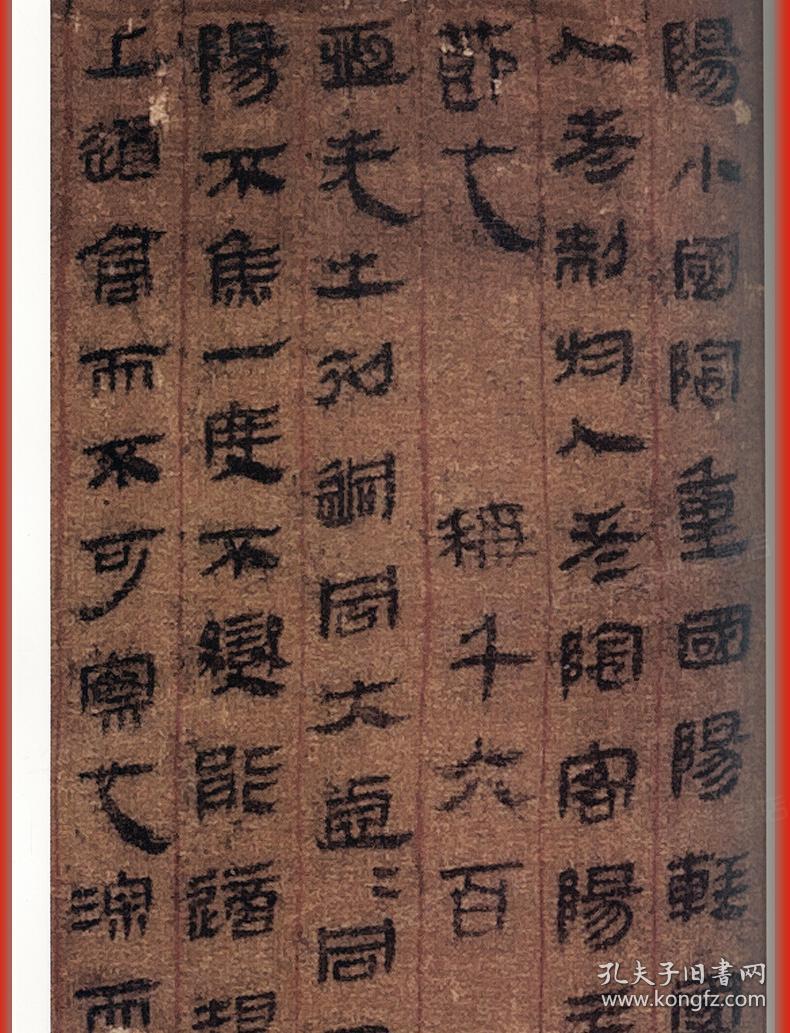 陽小國陰重國陽輕國
人者制於人者陰客陽
節也 稱千六百
恆先之初迵同大虛〓同
陽不焦一度不變能適規
上道高而不可察也深而
孔夫子旧书网
www.kongfz.com